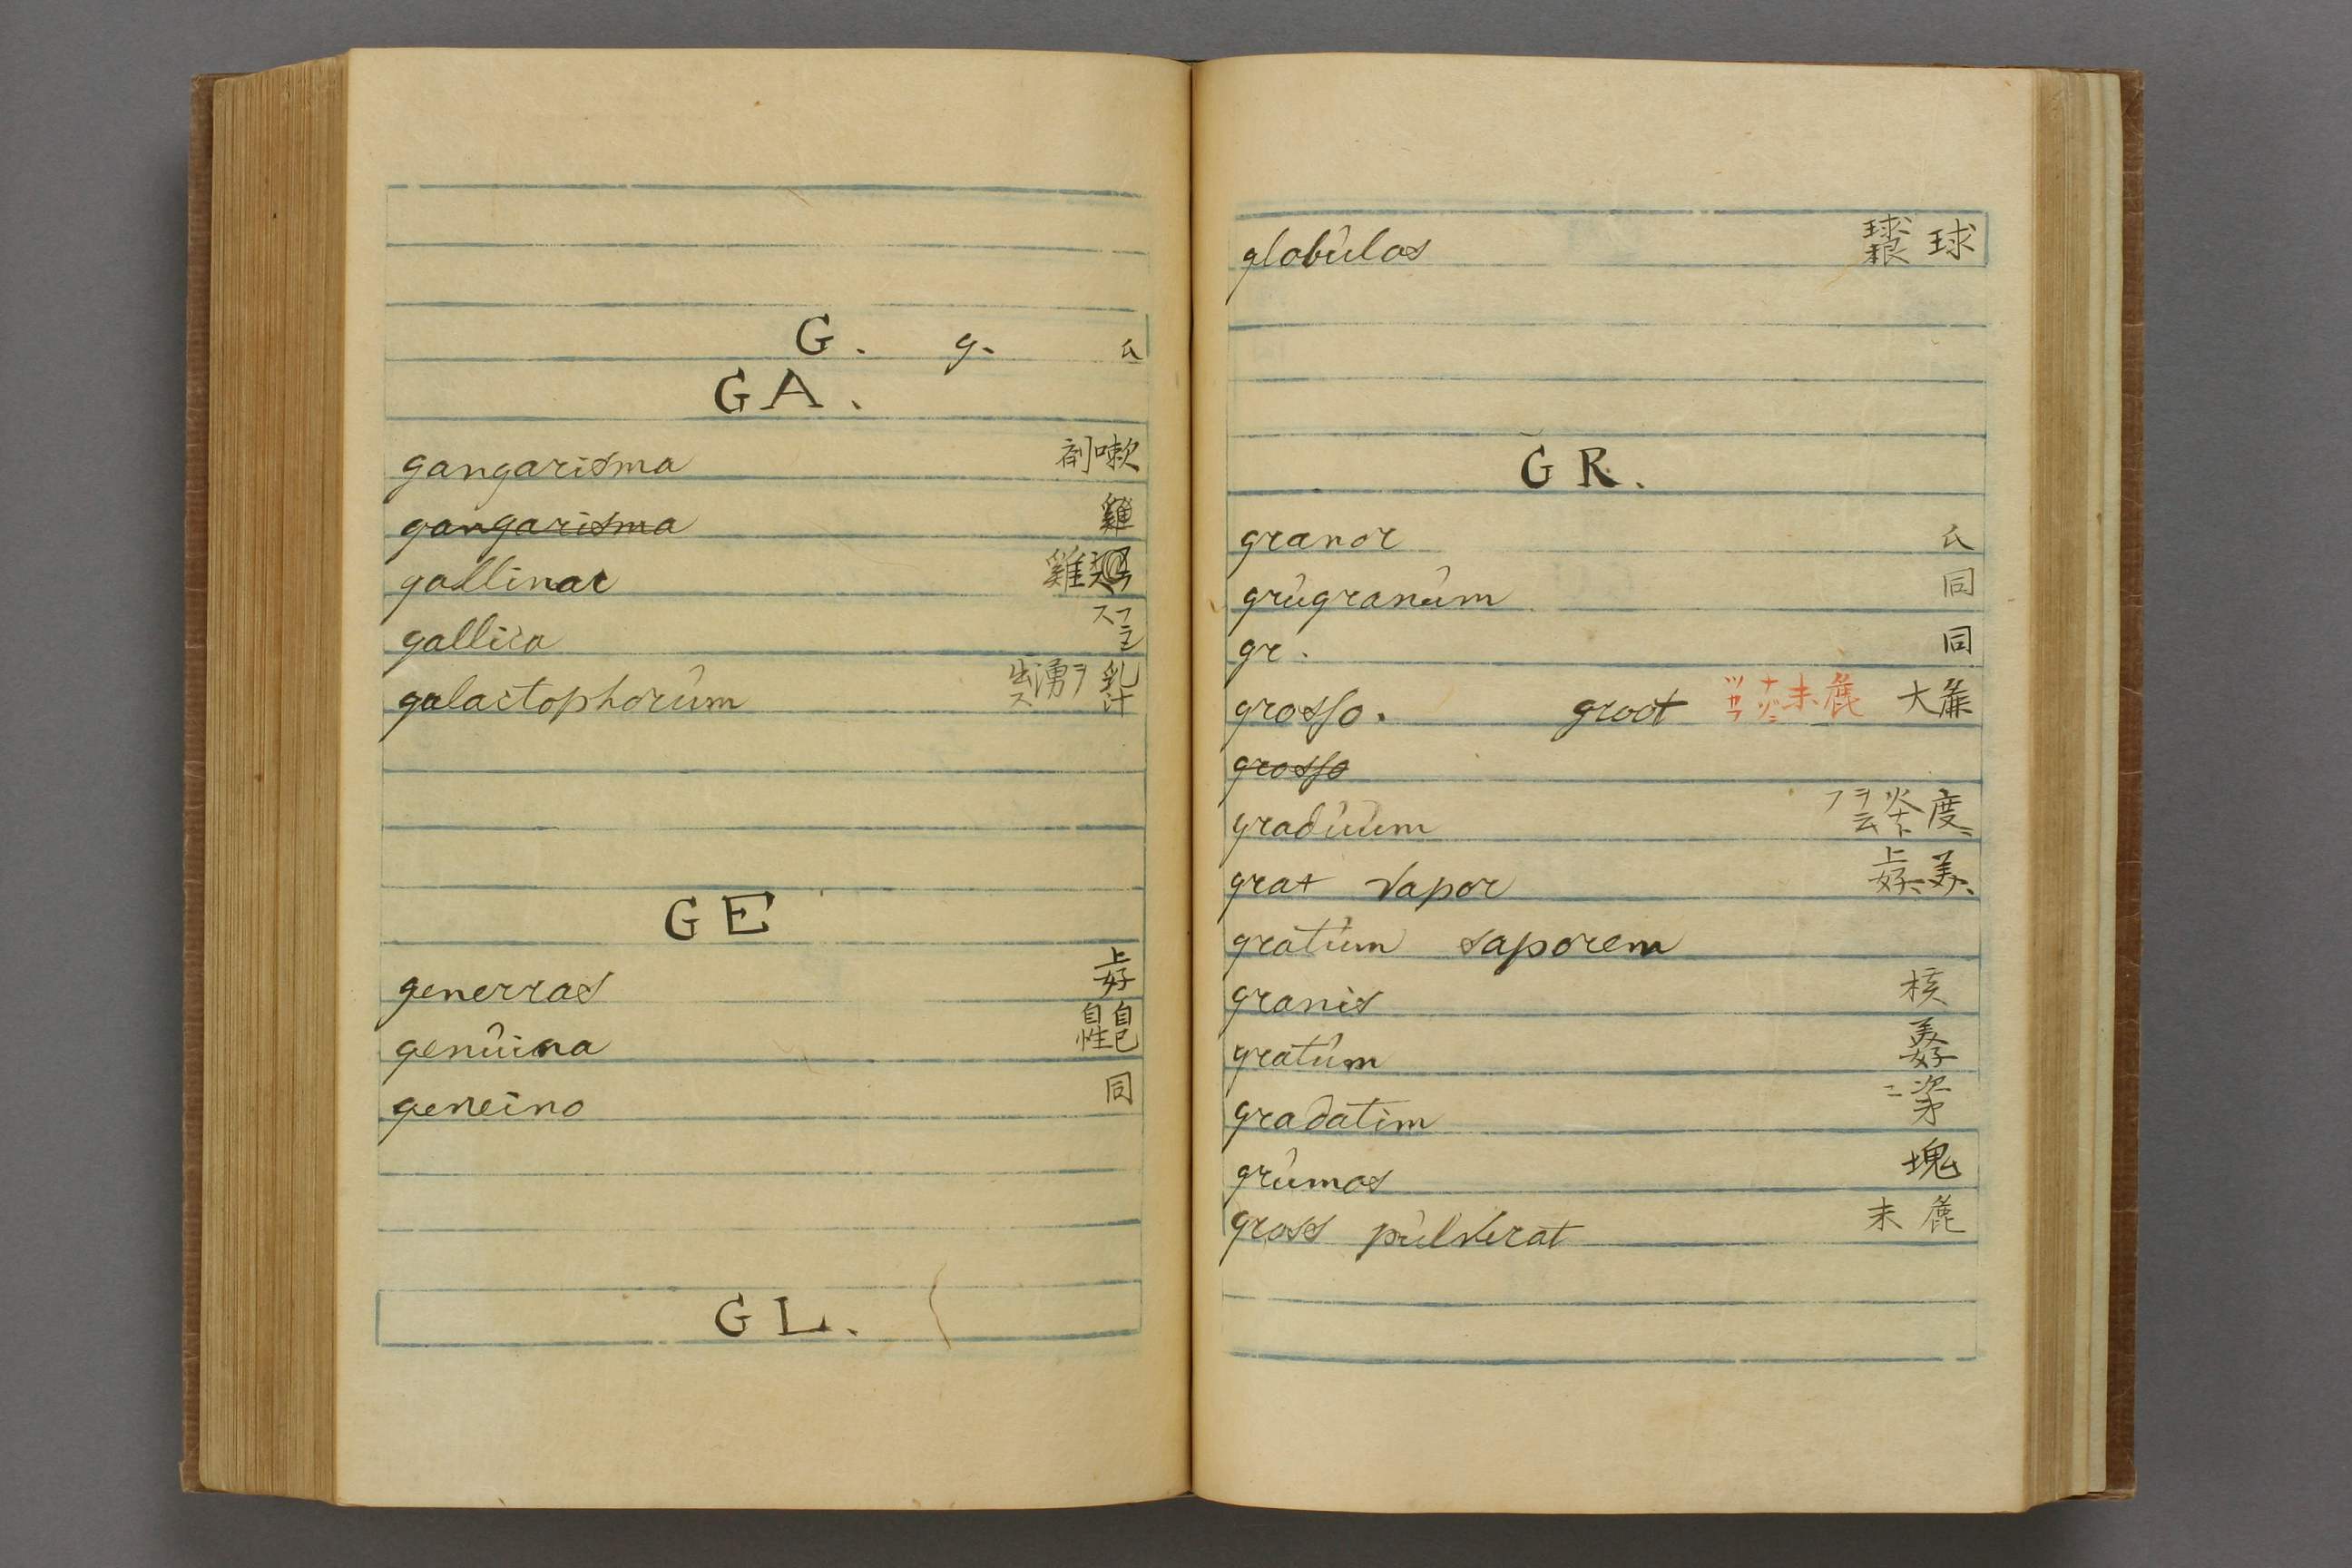 G. g. 氏
GA.
gangarisma 嗽剤
gangarisma 雞
gallinae 雞
gallica
galactophorûm 乳汁ヲ湧出ス
GE
generras 上好
genûina 自己自性
geneino 同
GL.
globûlos 球
GR.
granor 氏
grûgranûm 同
gr. 同
grosso. groot 麁末 大麁
grosso
gradûûm 度
grat vapor 美 上好
gratûm saporem
granis 核
gratûm 美好
gradatim 次第ニ
grûmos 塊
gross pûlverat 麁末